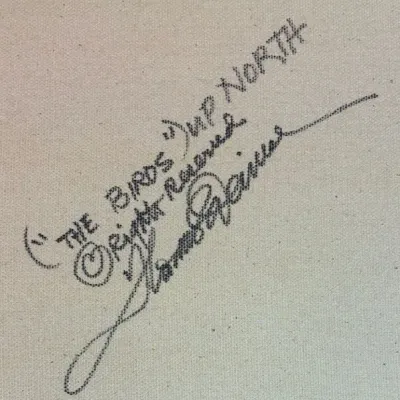 ("THE BIRDS") UP NORTH
© Right Reserved
Thomas